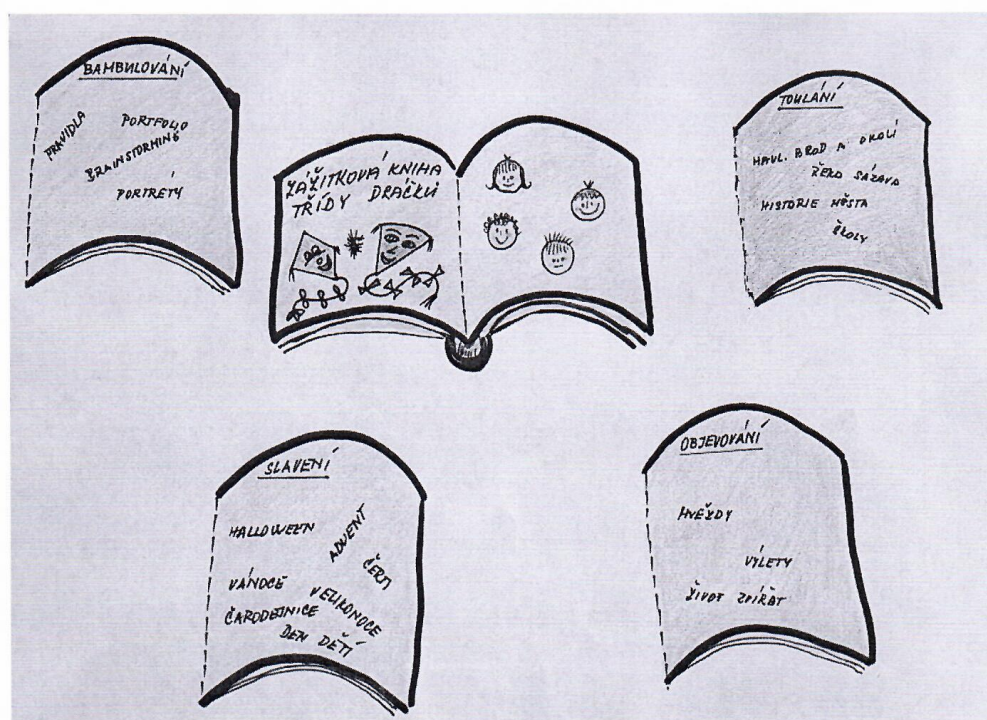 BAMBULOVÁNÍ
PRAVIDLA
PORTFOLIO
BRAINSTORMING
PORTRÉTY
ZÁŽITKOVÁ KNIHA
TŘÍDY DRÁČKŮ
TOULÁNÍ
HAVL. BROD A OKOLÍ
ŘEKA SÁZAVA
HISTORIE MĚSTA
ŠKOLY
SLAVENÍ
HALLOWEEN
ADVENT
ČERTI
VÁNOCE
VELIKONOCE
ČARODEJNICE
DEN DĚTÍ
OBJEVOVÁNÍ
HVĚZDY
VÝLETY
ŽIVOT ZVÍŘAT